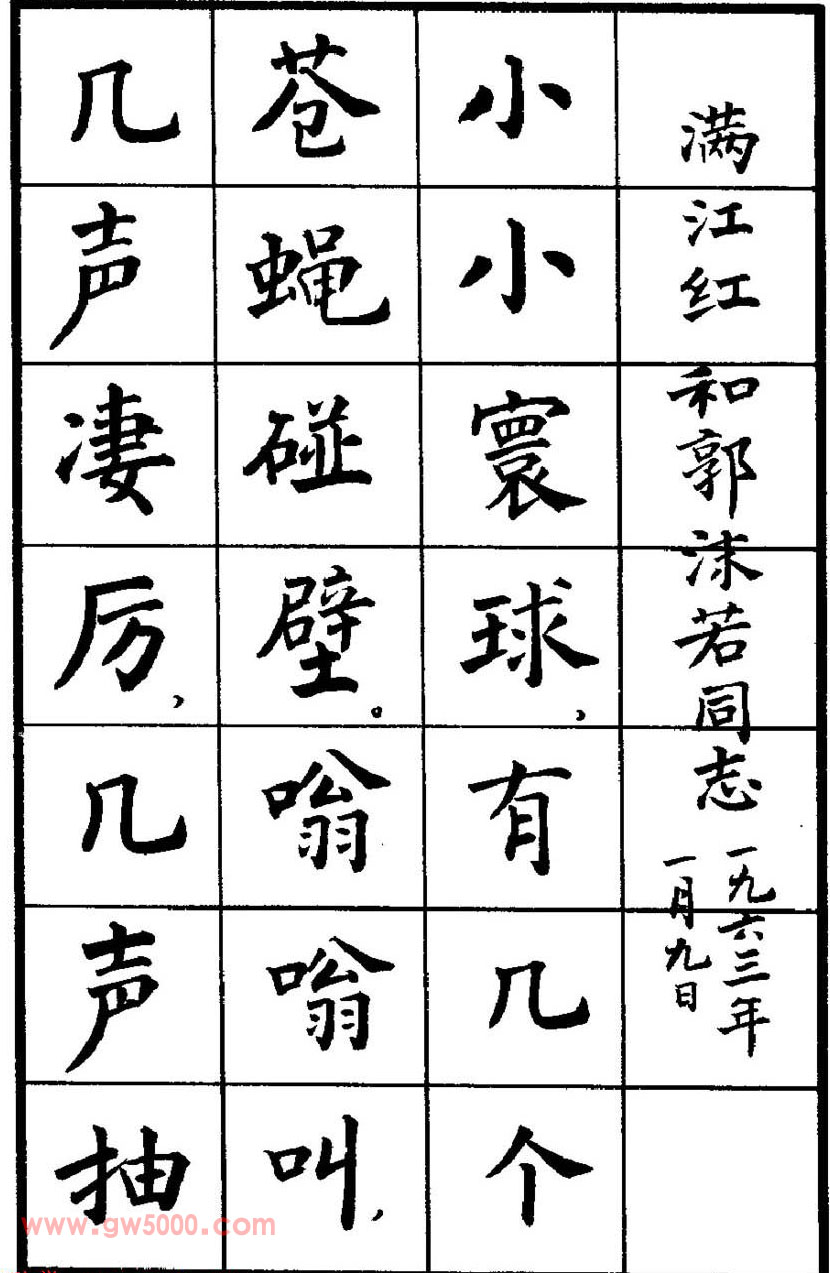 满江红 和郭沫若同志 一九六三年
一月九日
小小寰球，有几个
苍蝇碰壁。嗡嗡叫，
几声凄厉，几声抽
www.gw5000.com